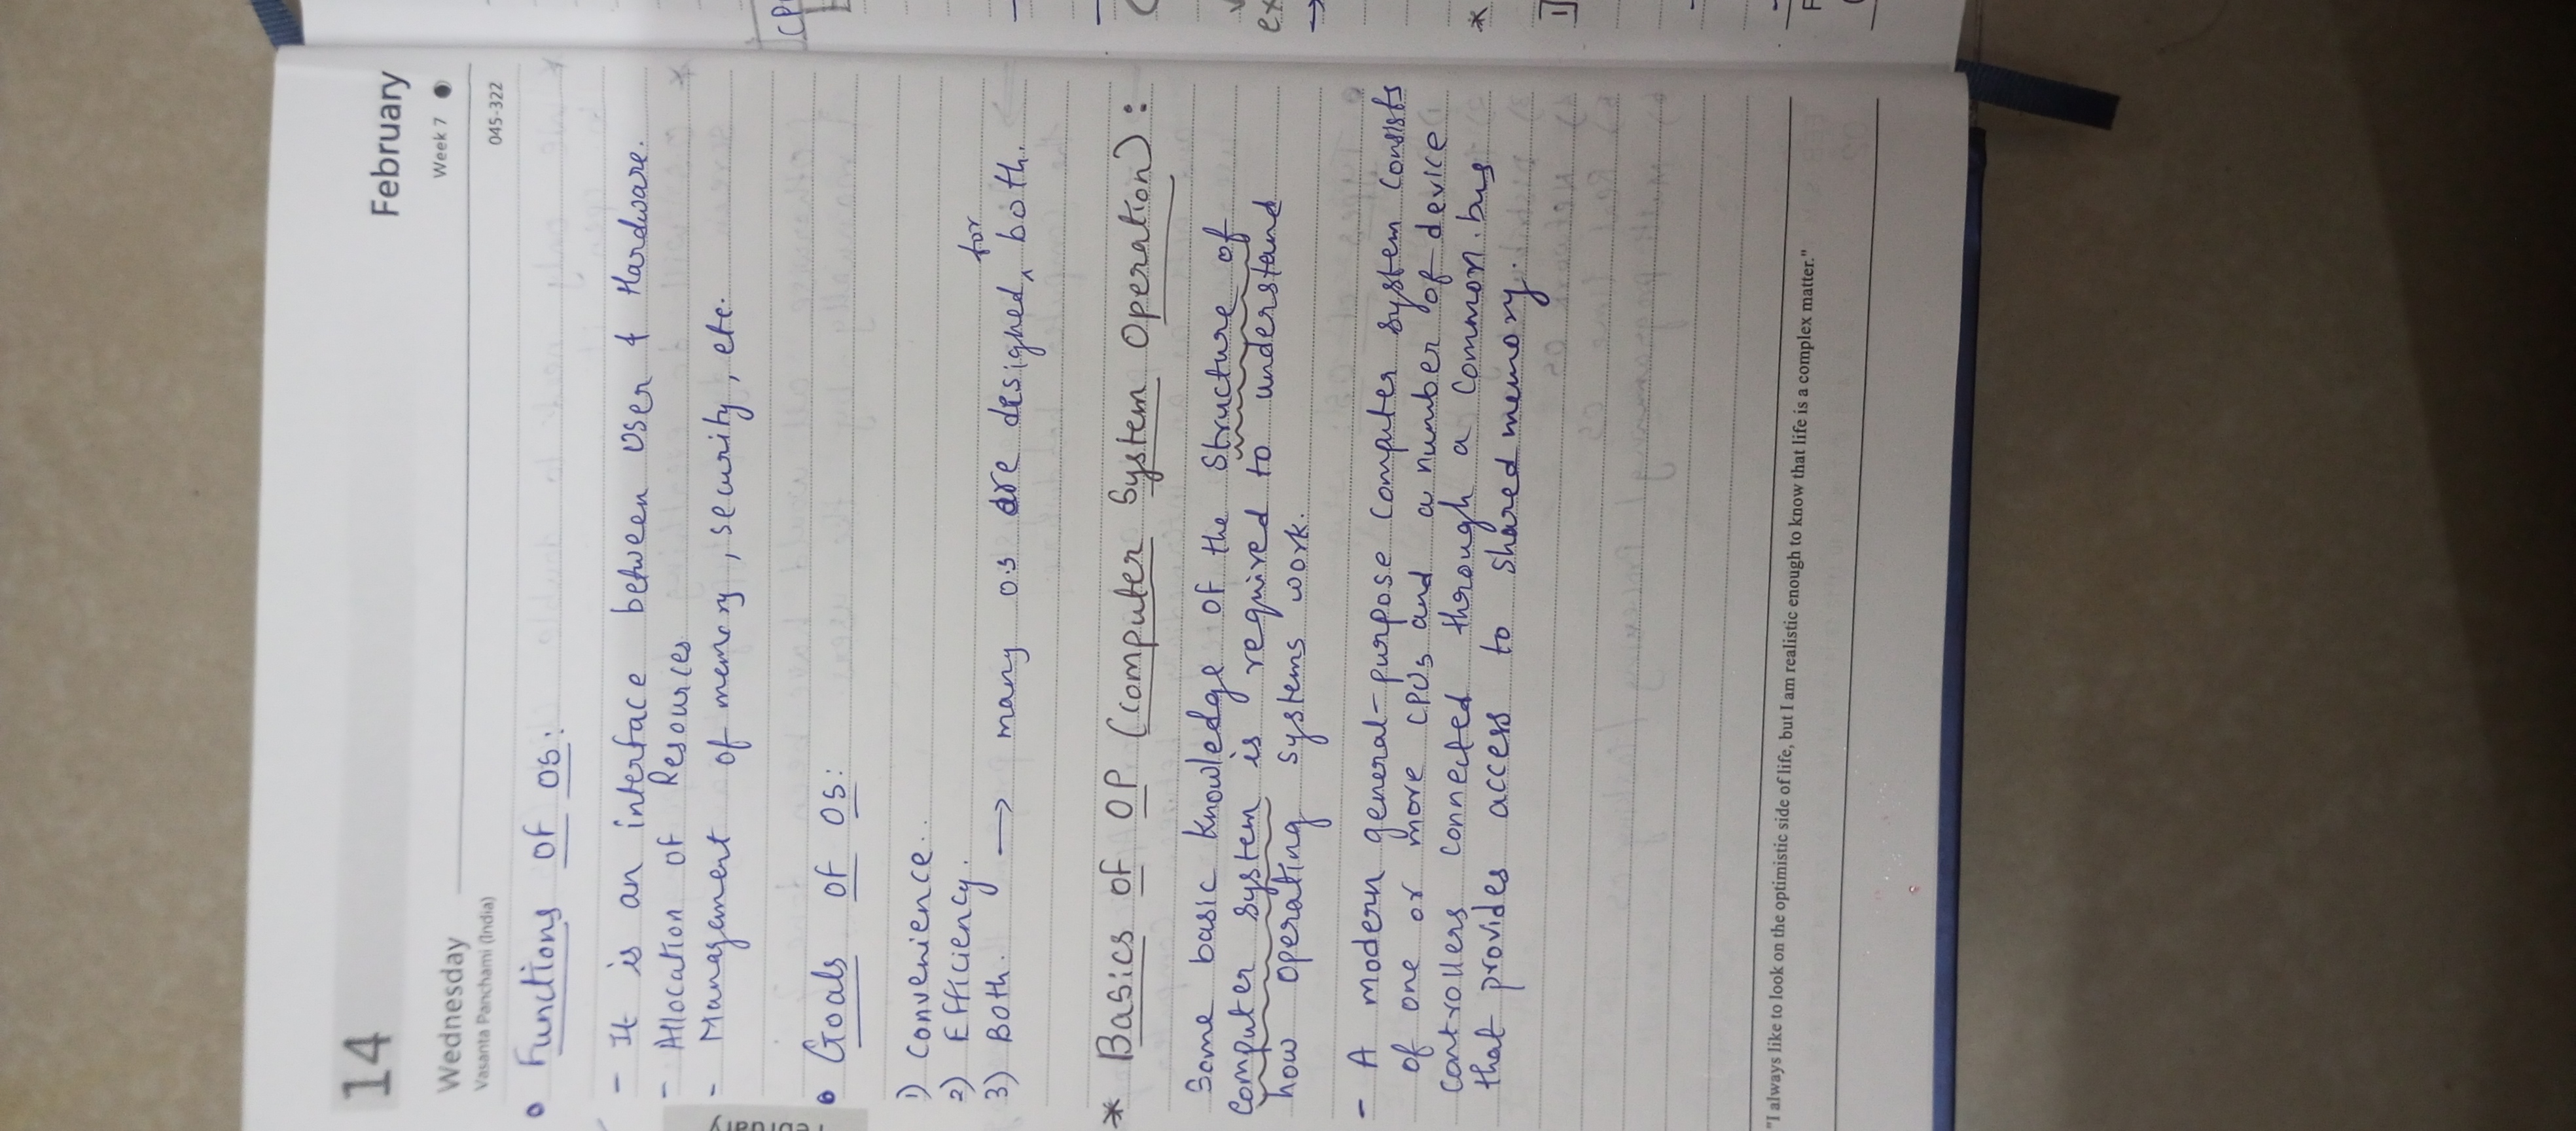 14
February
Wednesday
Week 7
Vasanta Panchami (India)
045-322
Functions of OS:
- It is an interface between User & Hardware.
- Allocation of Resources
- Management of memory, security, etc.
Goals of OS:
1) Convenience.
2) Efficiency.
3) Both. → many os are designed for both.
* Basics of OP (Computer System Operation):
Some basic knowledge of the structure of
computer system is required to understand
how operating systems work.
- A modern general-purpose computer system consists
of one or more CPUs and a number of device
controllers connected through a common bus
that provides access to shared memory.
"I always like to look on the optimistic side of life, but I am realistic enough to know that life is a complex matter."